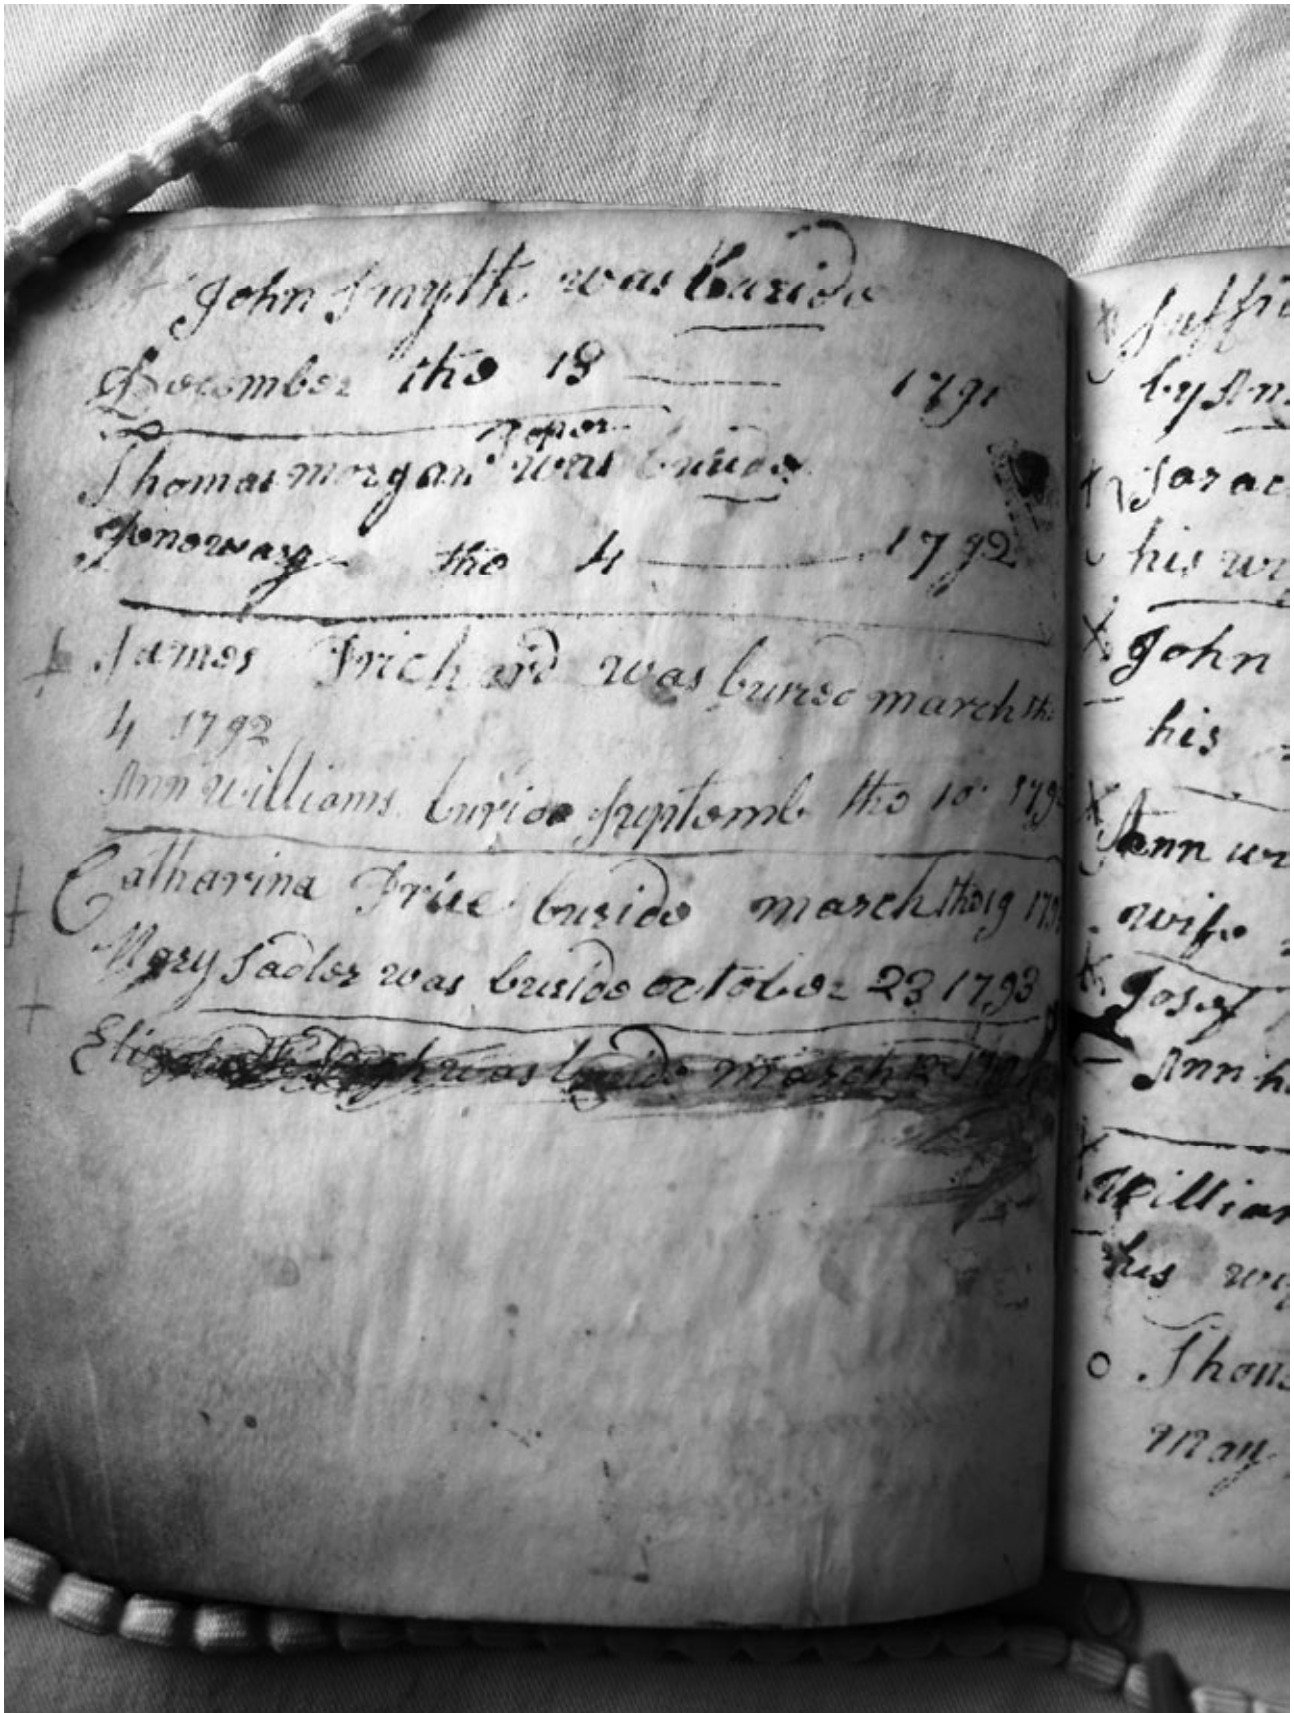 John Smyth was buride
December the 18 1791
Thomas morgan was buride
Jenoway the 4 1792
James Prichard was buried march the
4 1792
Ann williams buride Septemb the 10 179
Catharina Price buride march the 19 179
Mary Sadler was buride october 23 1793
was buride march 12 179
Suffr
by Ann
Sara
his wi
John
his
Ann wi
wife
Josep
Ann h
William
his wi
Thom
may